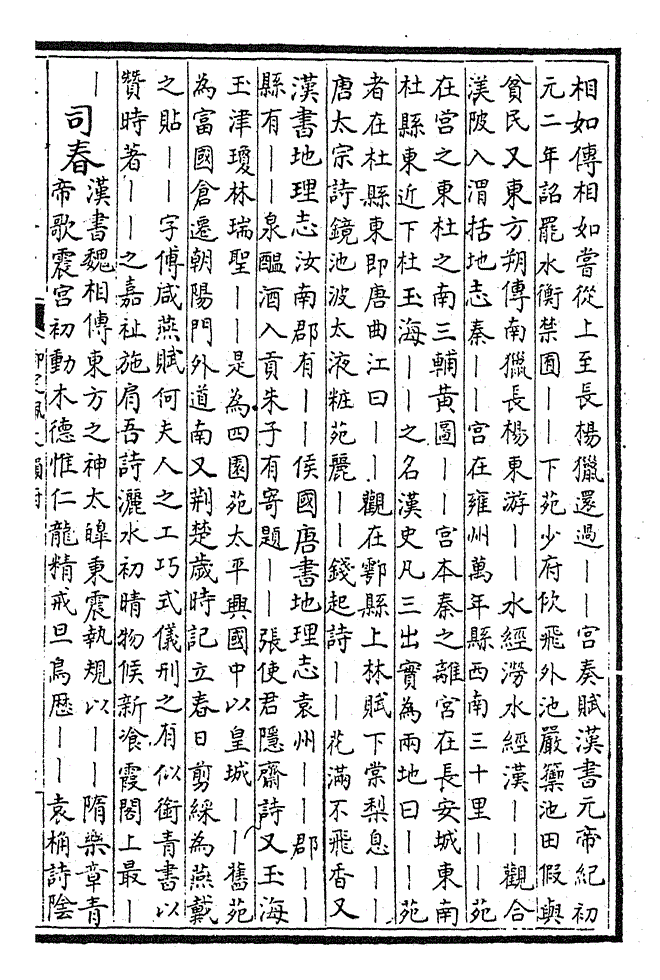 相如傳相如嘗從上至長楊獵還過｜｜宮奏賦漢書元帝紀初
元二年詔罷水衡禁囿｜｜下苑少府佽飛外池嚴籞池田假與
貧民又東方朔傳南獵長楊東游｜｜水經澇水經漢｜｜觀合
渼陂入渭括地志秦｜｜宮在雍州萬年縣西南三十里｜｜苑
在宮之東杜之南三輔黃圖｜｜宮本秦之離宮在長安城東南
杜縣東近下杜玉海｜｜之名漢史凡三出實為兩地曰｜｜苑
者在杜縣東即唐曲江曰｜｜觀在鄠縣上林賦下棠梨息｜｜
唐太宗詩鏡池波太液粧苑麗｜｜錢起詩｜｜花滿不飛香又
漢書地理志汝南郡有｜｜侯國唐書地理志袁州｜｜郡｜｜
縣有｜｜泉醖酒入貢朱子有寄題｜｜張使君隱齋詩又玉海
玉津瓊林瑞聖｜｜是為四園苑太平興國中以皇城｜｜舊苑
為富國倉遷朝陽門外道南又荆楚歲時記立春日剪綵為燕戴
之貼｜｜字傅咸燕賦何夫人之工巧式儀刑之有似銜青書以
贊時著｜｜之嘉祉施肩吾詩灑水初晴物候新飡霞閣上最｜
｜
司春
漢書魏相傳東方之神太皥東震執規以｜｜隋樂章青
帝歌震宮初動木德惟仁龍精戒旦鳥歷｜｜袁桷詩陰